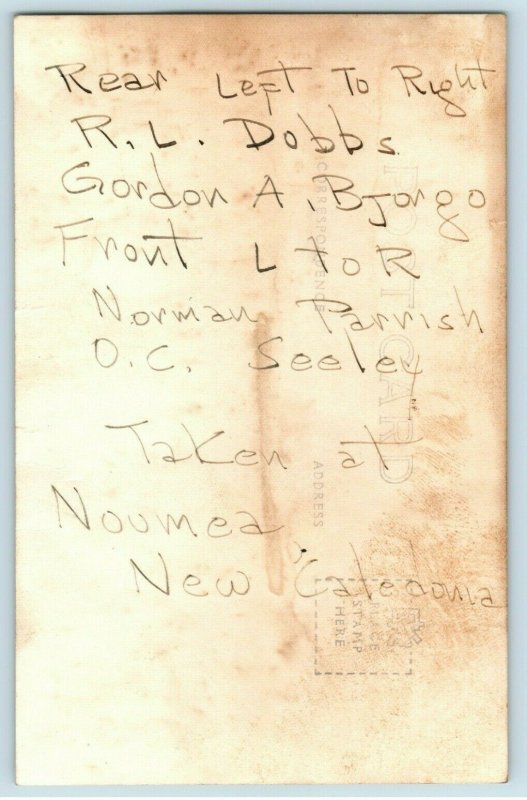 Rear Left To Right
R. L. Dobbs
Gordon A. Bjorgo
Front L to R
Norman Parrish
O.C. Seeley
Taken at
Noumea
New Caledonia
POST CARD
CORRESPONDENCE
ADDRESS
PLACE
STAMP
HERE